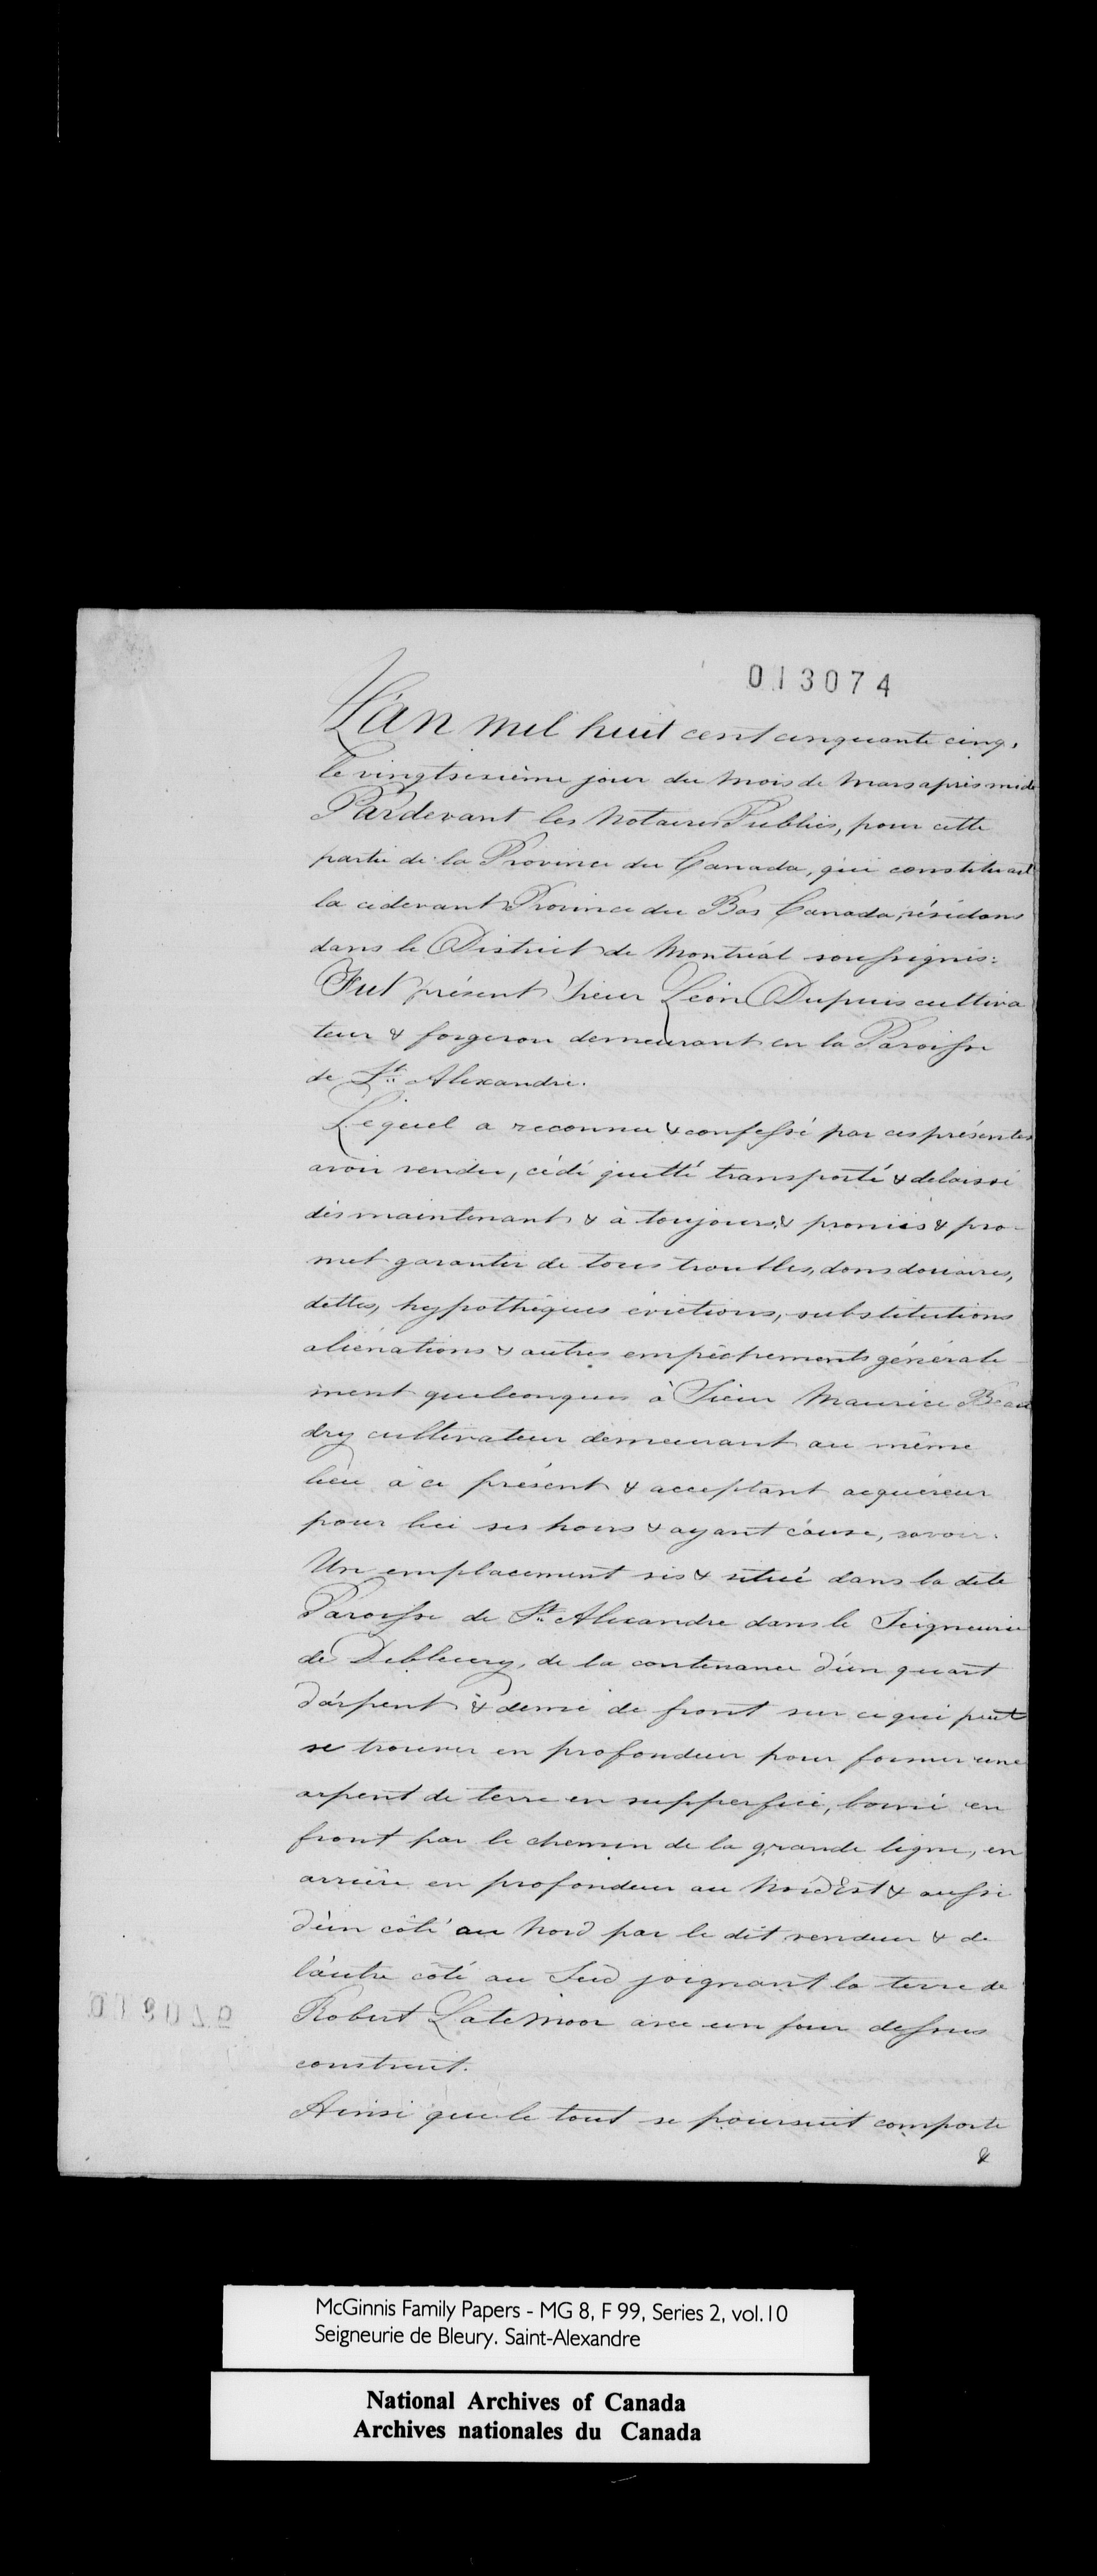 013074
L'an mil huit cent cinquante cinq,
le vingtsixième jour du mois de Mars après midi
Pardevant les Notaires Publics, pour cette
partie de la Province du Canada, qui constituait
la cidevant Province du Bas Canada, résidans
dans le District de Montréal soussignés:
Fut présent Sieur Léon Dupuis cultiva
teur & forgeron demeurant en la Paroisse
de St. Alexandre.
Lequel a reconnu & confessé par ces présentes
avoir vendu, cédé quitté transporté & delaissé
dès maintenant & à toujours & promis & pro-
met garantir de tous troubles, dons douaires,
dettes, hypothèques évictions, substitutions
aliénations & autres empêchements générale
ment quelconques à Sieur Maurice Beau
dry cultivateur demeurant au même
lieu à ce présent & acceptant acquéreur
pour lui ses hoirs & ayant cause, savoir:
Un emplacement sis & situé dans la dite
Paroisse de St. Alexandre dans le Seigneurie
de Debleury, de la contenance d'un quart
d'arpent & demi de front sur ce qui peut
se trouver en profondeur pour former une
arpent de terre en supperficie, borné en
front par le chemin de la grande ligne, en
arrière en profondeur au Nord Est & aussi
d'un côté au Nord par le dit vendeur & de
l'autre côté au Sud joignant la terre de
Robert Latemoor avec un four dessus
construit.
Ainsi que le tout se poursuit comporte
&
McGinnis Family Papers - MG 8, F 99, Series 2, vol.10
Seigneurie de Bleury. Saint-Alexandre
National Archives of Canada
Archives nationales du Canada